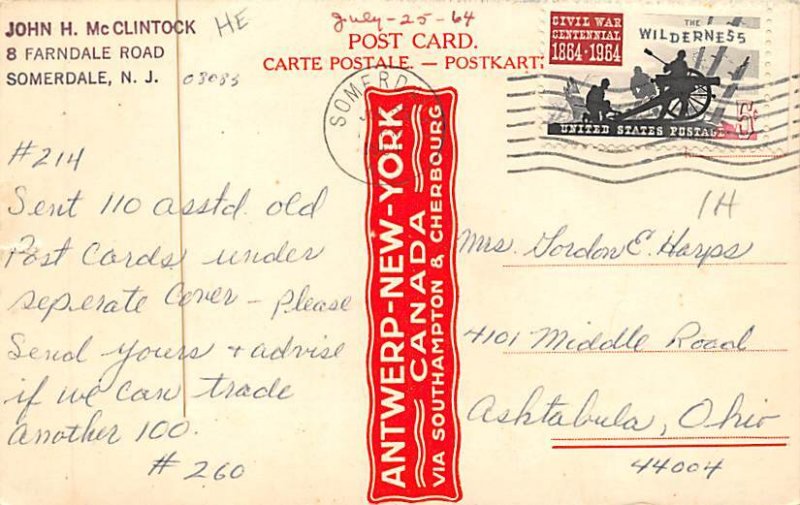 JOHN H. McCLINTOCK
8 FARNDALE ROAD
SOMERDALE, N. J. 08083
HE
July-25-64
POST CARD.
CARTE POSTALE. — POSTKART
SOMERD
CIVIL WAR
CENTENNIAL
1864-1964
THE
WILDERNESS
UNITED STATES POSTAGE 5¢
ANTWERP-NEW-YORK
CANADA
VIA SOUTHAMPTON & CHERBOURG
#214
Sent 110 asstd. old
Post Cards under
seperate Cover - Please
Send yours + advise
if we can trade
another 100.
#260
1H
Mrs. Gordon E. Harps
4101 Middle Road
Ashtabula, Ohio
44004